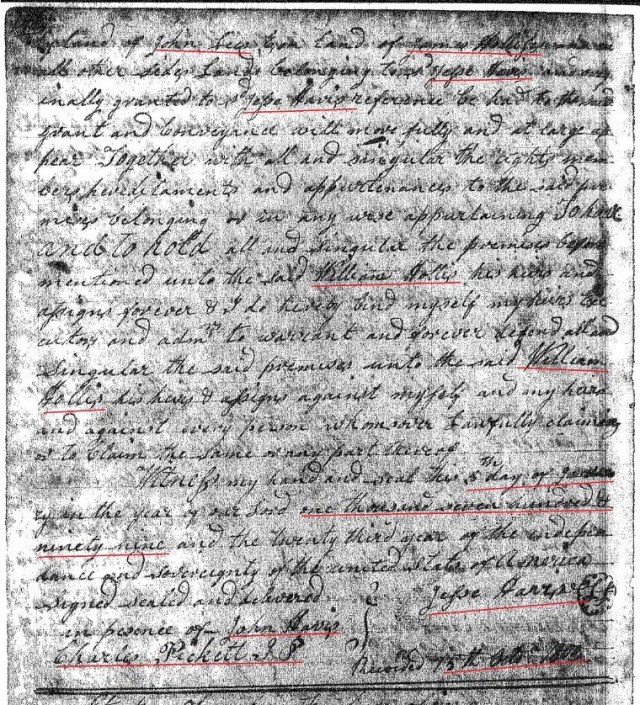 land of John land of
all other sides Lands belonging to sd Jesse Harris and orig
inally granted to sd Jesse Harris reference be had to the said
grant and conveyance will more fully and at large ap
pear Together with all and singular the rights mem
bers hereditaments and appurtenances to the said pre
mises belonging or in any wise appurtaining To have
and to hold all and singular the premises before
mentioned unto the said William Hollis his heirs and
assigns forever & I do hereby bind myself my heirs Exe
cutors and admrs to warrant and forever defend all and
Singular the said premises unto the said William
Hollis his heirs & assigns against myself and my heirs
and against every person whomever Lawfully claiming
or to Claim the same or any part thereof
Witness my hand and seal this 5th day of Janua
ry in the year of our Lord one thousand seven hundred &
ninety nine and the twenty third year of the indepen
dance and sovereignty of the united States of America
Signed sealed and delivered
in presence of John Harris
Jesse Harris
Charles Pickett J P
Recorded